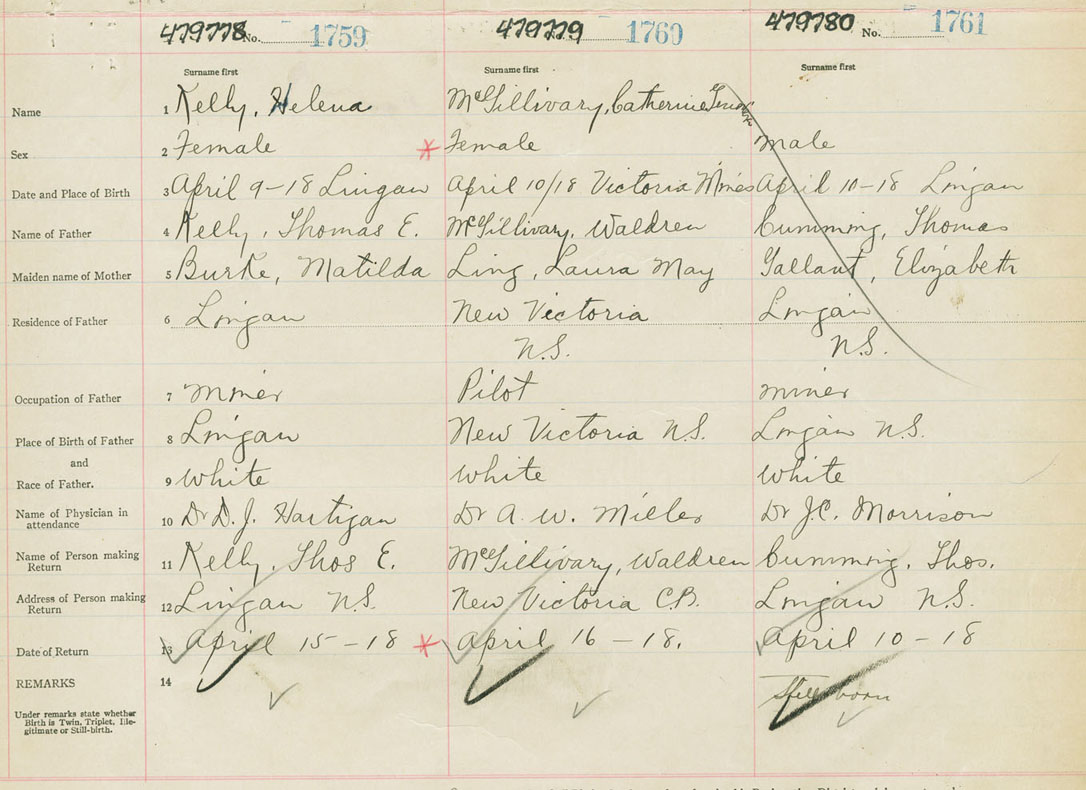 479778 No. 1759 479779 1760 479780 No. 1761
Surname first Surname first Surname first
Name 1 Kelly, Helena McGillivary, Catherine
Sex 2 Female Female male
Date and Place of Birth 3 April 9-18 Lingan April 10/18 Victoria Mines April 10-18 Lingan
Name of Father 4 Kelly, Thomas E. McGillivary, Waldren Cumming, Thomas
Maiden name of Mother 5 Burke, Matilda Ling, Laura May Gallant, Elizabeth
Residence of Father 6 Lingan New Victoria Lingan
N.S. N.S.
Occupation of Father 7 miner Pilot miner
Place of Birth of Father 8 Lingan New Victoria N.S. Lingan N.S.
and
Race of Father. 9 white white white
Name of Physician in
attendance 10 Dr D. J. Hartigan Dr A. W. Miller Dr J.C. Morrison
Name of Person making
Return 11 Kelly, Thos E. McGillivary, Waldren Cumming, Thos.
Address of Person making
Return 12 Lingan N.S. New Victoria C.B. Lingan N.S.
Date of Return 13 April 15-18 April 16-18. April 10-18
REMARKS 14 Still born
Under remarks state whether
Birth is Twin, Triplet, Ille-
gitimate or Still-birth.